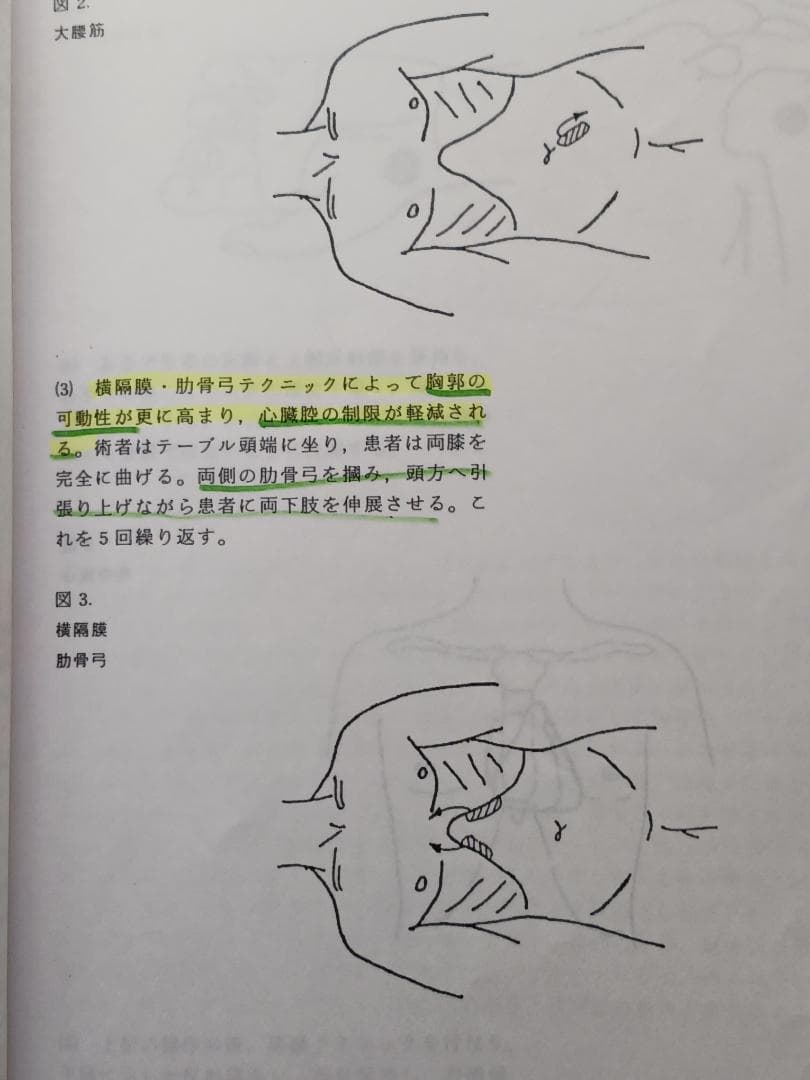 図 2.
大腰筋
(3) 横隔膜・肋骨弓テクニックによって胸郭の
可動性が更に高まり，心臓腔の制限が軽減され
る。術者はテーブル頭端に坐り，患者は両膝を
完全に曲げる。両側の肋骨弓を摑み，頭方へ引
張り上げながら患者に両下肢を伸展させる。こ
れを5回繰り返す。
図 3.
横隔膜
肋骨弓